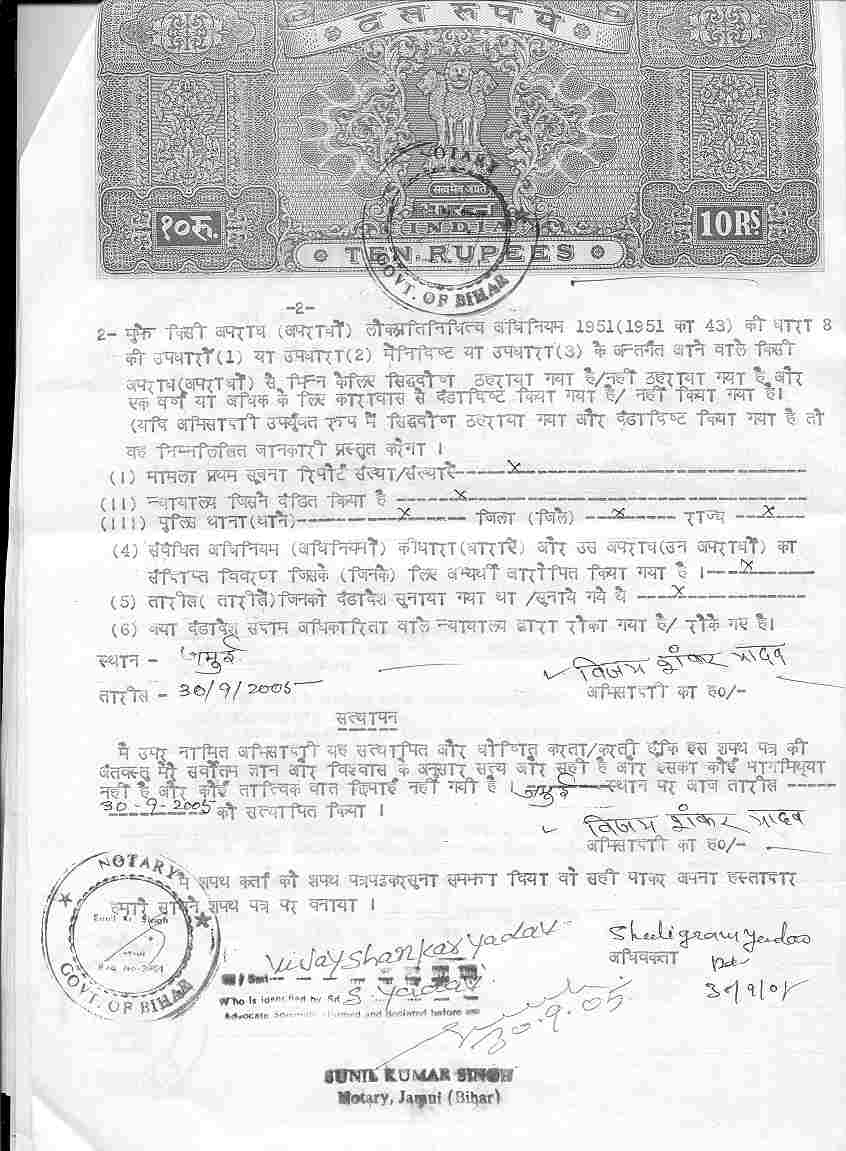 दस रुपये
NOTARY
सत्यमेव जयते
१०रु.
INDIA
10RS
TEN RUPEES
GOVT. OF BIHAR
-2-
2- मुझे किसी अपराध (अपराधों) लोकप्रतिनिधित्व अधिनियम 1951(1951 का 43) की धारा 8
की उपधारा(1) या उपधारा(2) में निर्दिष्ट या उपधारा(3) के अन्तर्गत आने वाले किसी
अपराध(अपराधों) से भिन्न के लिए सिद्धदोष ठहराया गया है/नहीं ठहराया गया है और
एक वर्ष या अधिक के लिए कारावास से दंडादिष्ट किया गया है/ नहीं किया गया है।
(यदि अभिसाक्षी उपर्युक्त रूप में सिद्धदोष ठहराया गया और दंडादिष्ट किया गया है तो
वह निम्नलिखित जानकारी प्रस्तुत करेगा ।
(1) मामला प्रथम सूचना रिपोर्ट संख्या/संख्यारें-----x-----
(11) न्यायालय जिसने दंडित किया है -----x-----
(111) पुलिस थाना(थाने)-----x----- जिला (जिले) ----x---- राज्य ---x---
(4) संबंधित अधिनियम (अधिनियमों) की धारा(धाराएं) और उस अपराध(उन अपराधों) का
संक्षिप्त विवरण जिसके (जिनके) लिए अभ्यर्थी आरोपित किया गया है ।----x----
(5) तारीख( तारीखें)जिनको दंडादेश सुनाया गया था /सुनाये गये थे -----x-----
(6) क्या दंडादेश सक्षम अधिकारिता वाले न्यायालय द्वारा रोका गया है/ रोके गए है।
स्थान - जमुई
विजय शंकर यादव
तारीख - 30/9/2005
अभिसाक्षी का ह0/-
सत्यापन
मैं उपर नामित अभिसाक्षी यह सत्यापित और घोषित करता/करती हूँ कि इस शपथ पत्र की
अंतर्वस्तु मेरे सर्वोतम ज्ञान और विश्वास के अनुसार सत्य और सही है और इसका कोई भाग मिथ्या
नहीं है और कोई तात्त्विक बात छिपाई नहीं गयी है । जमुई स्थान पर आज तारीख -----
30-9-2005 को सत्यापित किया ।
विजय शंकर यादव
अभिसाक्षी का ह0/-
मैं शपथ कर्ता को शपथ पत्र पढ़कर सुना समझा दिया वो सही पाकर अपना हस्ताक्षर
हमारे सामने शपथ पत्र पर बनाया ।
NOTARY
GOVT. OF BIHAR
Vijay Shankar Yadav
Who is identified by Sd S Yadav
Advocate affirmed and declared before me
30.9.05
Shaligram Yadav
अधिवक्ता
30/9/05
SUNIL KUMAR SINGH
Notary, Jamui (Bihar)